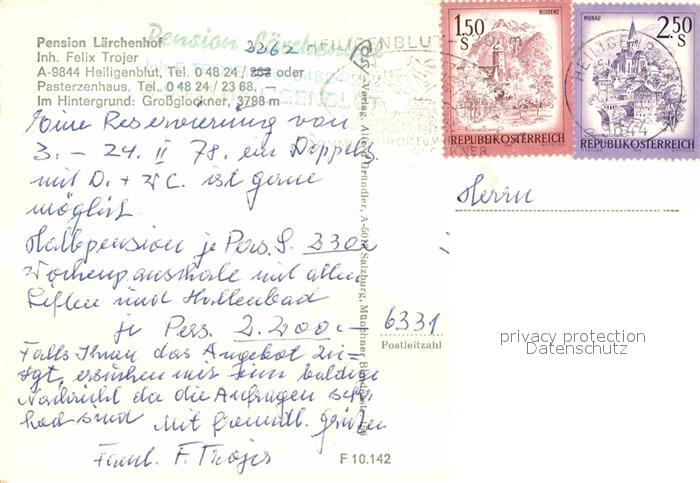 Pension Lärchenhof
Inh. Felix Trojer
A-9844 Heiligenblut, Tel. 0 48 24 / oder
Pasterzenhaus, Tel. 0 48 24 / 23 68, —
Im Hintergrund: Großglockner, 3798 m
2262
Pension Lärchenhof
HEILIGENBLUT
Eine Reservierung von
3. – 24. II 78. ein Doppelz
mit D. + WC. ist gerne
möglich.
Halbpension je Pers. S. 330.-
Wochenpauschale mit allen
Liften und Hallenbad
je Pers. 2.200.-
Falls Ihnen das Angebot zu-
sagt, ersuchen wir um baldige
Nachricht da die Anfragen sehr
hoch sind mit freundl. Grüßen
Faml. F. Trojer
F 10.142
Verlag, Albert Gründler, A-50 Salzburg, Münchner
1.50 S
BLUDENZ
REPUBLIK ÖSTERREICH
2.50 S
MURAU
REPUBLIK ÖSTERREICH
HEILIGENBLUT
9844
Herrn
6331
Postleitzahl
privacy protection
Datenschutz